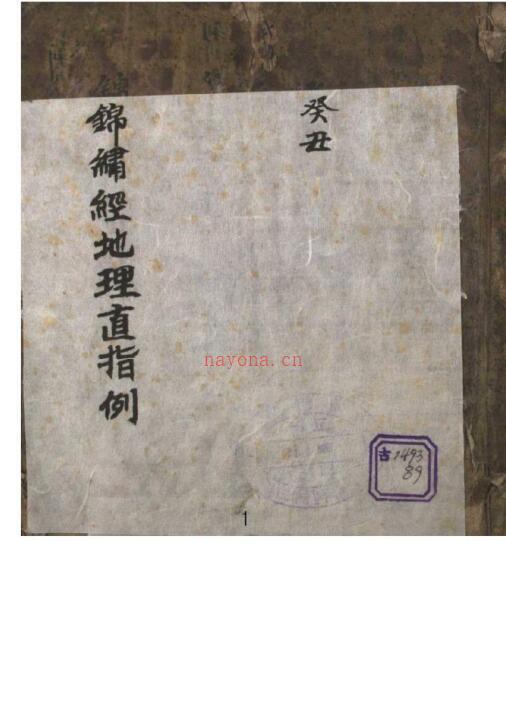 癸丑
錦繡經地理直指例
nayona.cn
古1493
89
1